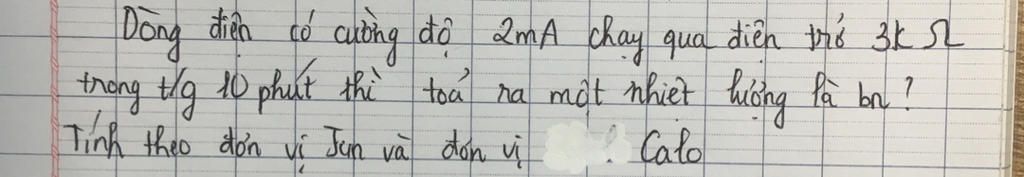 Dòng điện có cường độ 2mA chạy qua điện trở 3k Ω
trong t/g 10 phút thì toả ra một nhiệt lượng là bn?
Tính theo đơn vị Jun và đơn vị Calo